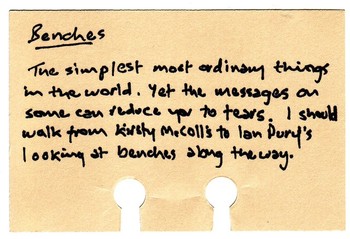 Benches
The simplest most ordinary things
in the world. Yet the messages on
some can reduce you to tears. I should
walk from Kirsty McColl's to Ian Dury's
looking at benches along the way.